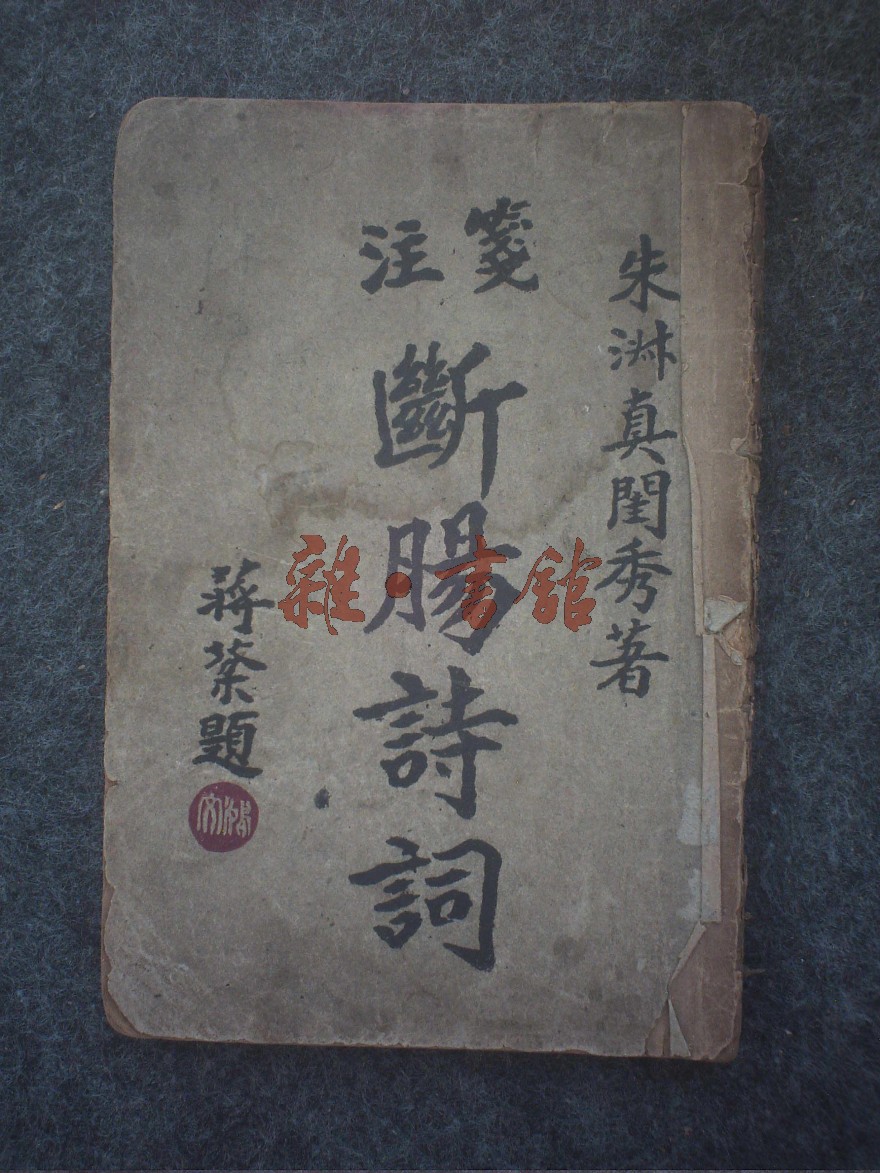 朱淑真閨秀著
箋注
斷腸詩詞
蔣棻題
雜·書館